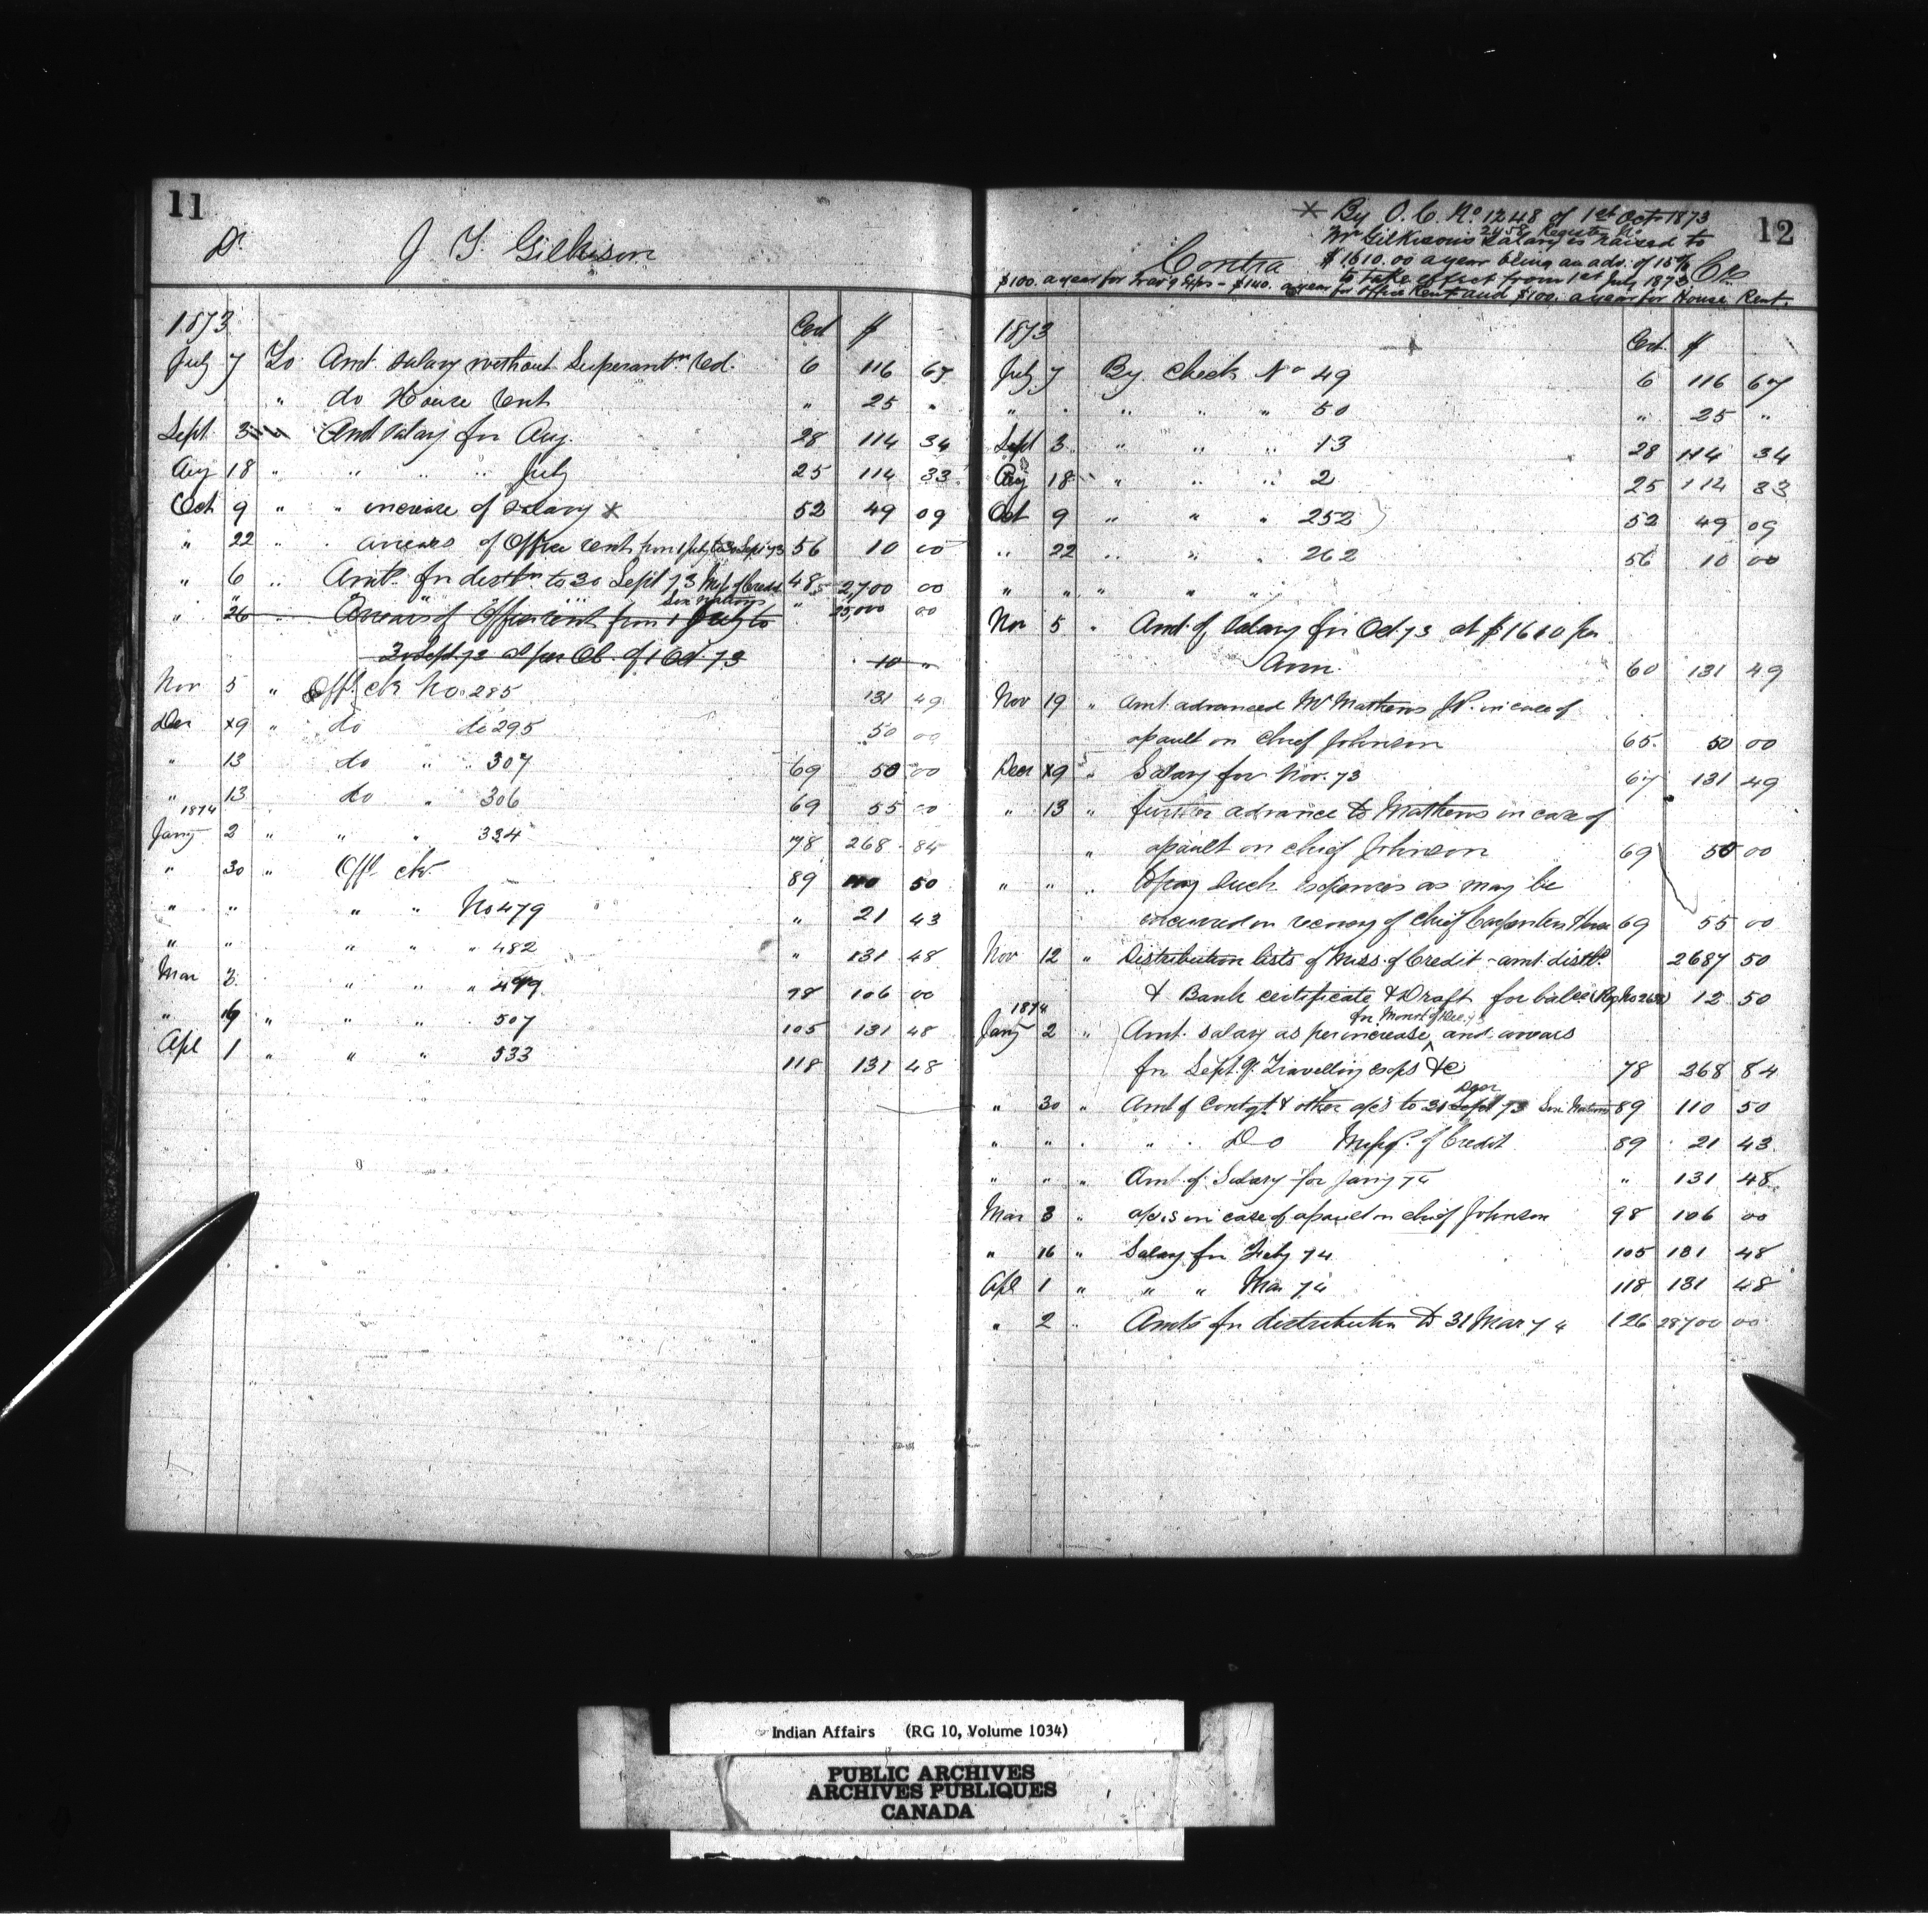 11
Dr. J T Gilkison
1873 Cert $
July 7 To Amt. salary without Superantn. Red. 6 116 67
" do House Rent " 25 "
Sept 3 " Amt salary for Aug. 28 114 34
Aug 18 " " " " July 25 114 33
Oct 9 " " increase of salary * 52 49 09
" 22 " " arrears of Office rent from 1 July to 30 Sept 73 56 10 00
" 6 " Amt. for distbn to 30 Sept 73 Miss. of Credit 48 2,700 00
" " " " Six Nations " 25,000 00
" 26 " Arrears of Office rent from 1 July to
30 Sept. 73 as per O.C. of 1 Oct. 73 10 "
Nov 5 " Offl. ck No. 285 131 49
Dec x9 " do do 295 50 00
" 13 do " " 307 69 50 00
" 13 do " 306 69 55 00
1874
Jany 2 " " " 334 78 268 84
" 30 " Offl ck. 89 110 50
" " " " No 479 " 21 43
" " " " " 482 " 131 48
Mar 3 " " " 499 98 106 00
" 16 " " " 507 105 131 48
Apl 1 " " " 533 118 131 48
12
* By O. C. No. 1248 of 1st Octr 1873
2458 Register No
Mr Gilkison's Salary is raised to
$1610.00 a year being an adv. of 15%
Contra Cr.
to take effect from 1st July 1873.
$100. a year for Trav'g Exps - $140. a year for Office Rent and $100. a year for House Rent.
1873 Cert. $
July 7 By Check No 49 6 116 67
" " " " " 50 " 25 "
Sept 3 " " " 13 28 114 34
Aug 18 " " " 2 25 114 33
Oct 9 " " " 252 52 49 09
" 22 " " " 262 56 10 00
" " " " "
Nov 5 " Amt. of Salary for Oct. 73 at $1610 per
Ann. 60 131 49
Nov 19 " Amt. advanced Mr Mathews J.P. in case of
assault on Chief Johnson 65 50 00
Decr x9 " Salary for Nov. 73 67 131 49
" 13 " further advance to Mathews in case of
" assault on Chief Johnson 69 50 00
" " " To pay such expenses as may be
incurred in recovery of Chief Carpenters 69 55 00
Nov 12 " Distribution lists of Miss. of Credit - amt. distd. 2687 50
& Bank certificate & Draft for balce 12 50
1874
for Month of Dec. 73
Jany 2 " Amt. salary as per increase ^ and arrears
for Sept. qr. Travelling exps &c 78 268 84
" 30 " Amt of Contgt. & other a/cs to 31 Sept Decr 73 Six Nations 89 110 50
" " " " " Do Missg. of Credit 89 21 43
" " " Amt. of Salary for Jany 74 " 131 48
Mar 3 " a/cs in case of assault on Chief Johnson 98 106 00
" 16 " Salary for Feby 74 105 131 48
Apl 1 " " " Mar 74 118 131 48
" 2 " Amts for distribution to 31 Mar 74 126 28700 00
Indian Affairs (RG 10, Volume 1034)
PUBLIC ARCHIVES
ARCHIVES PUBLIQUES
CANADA